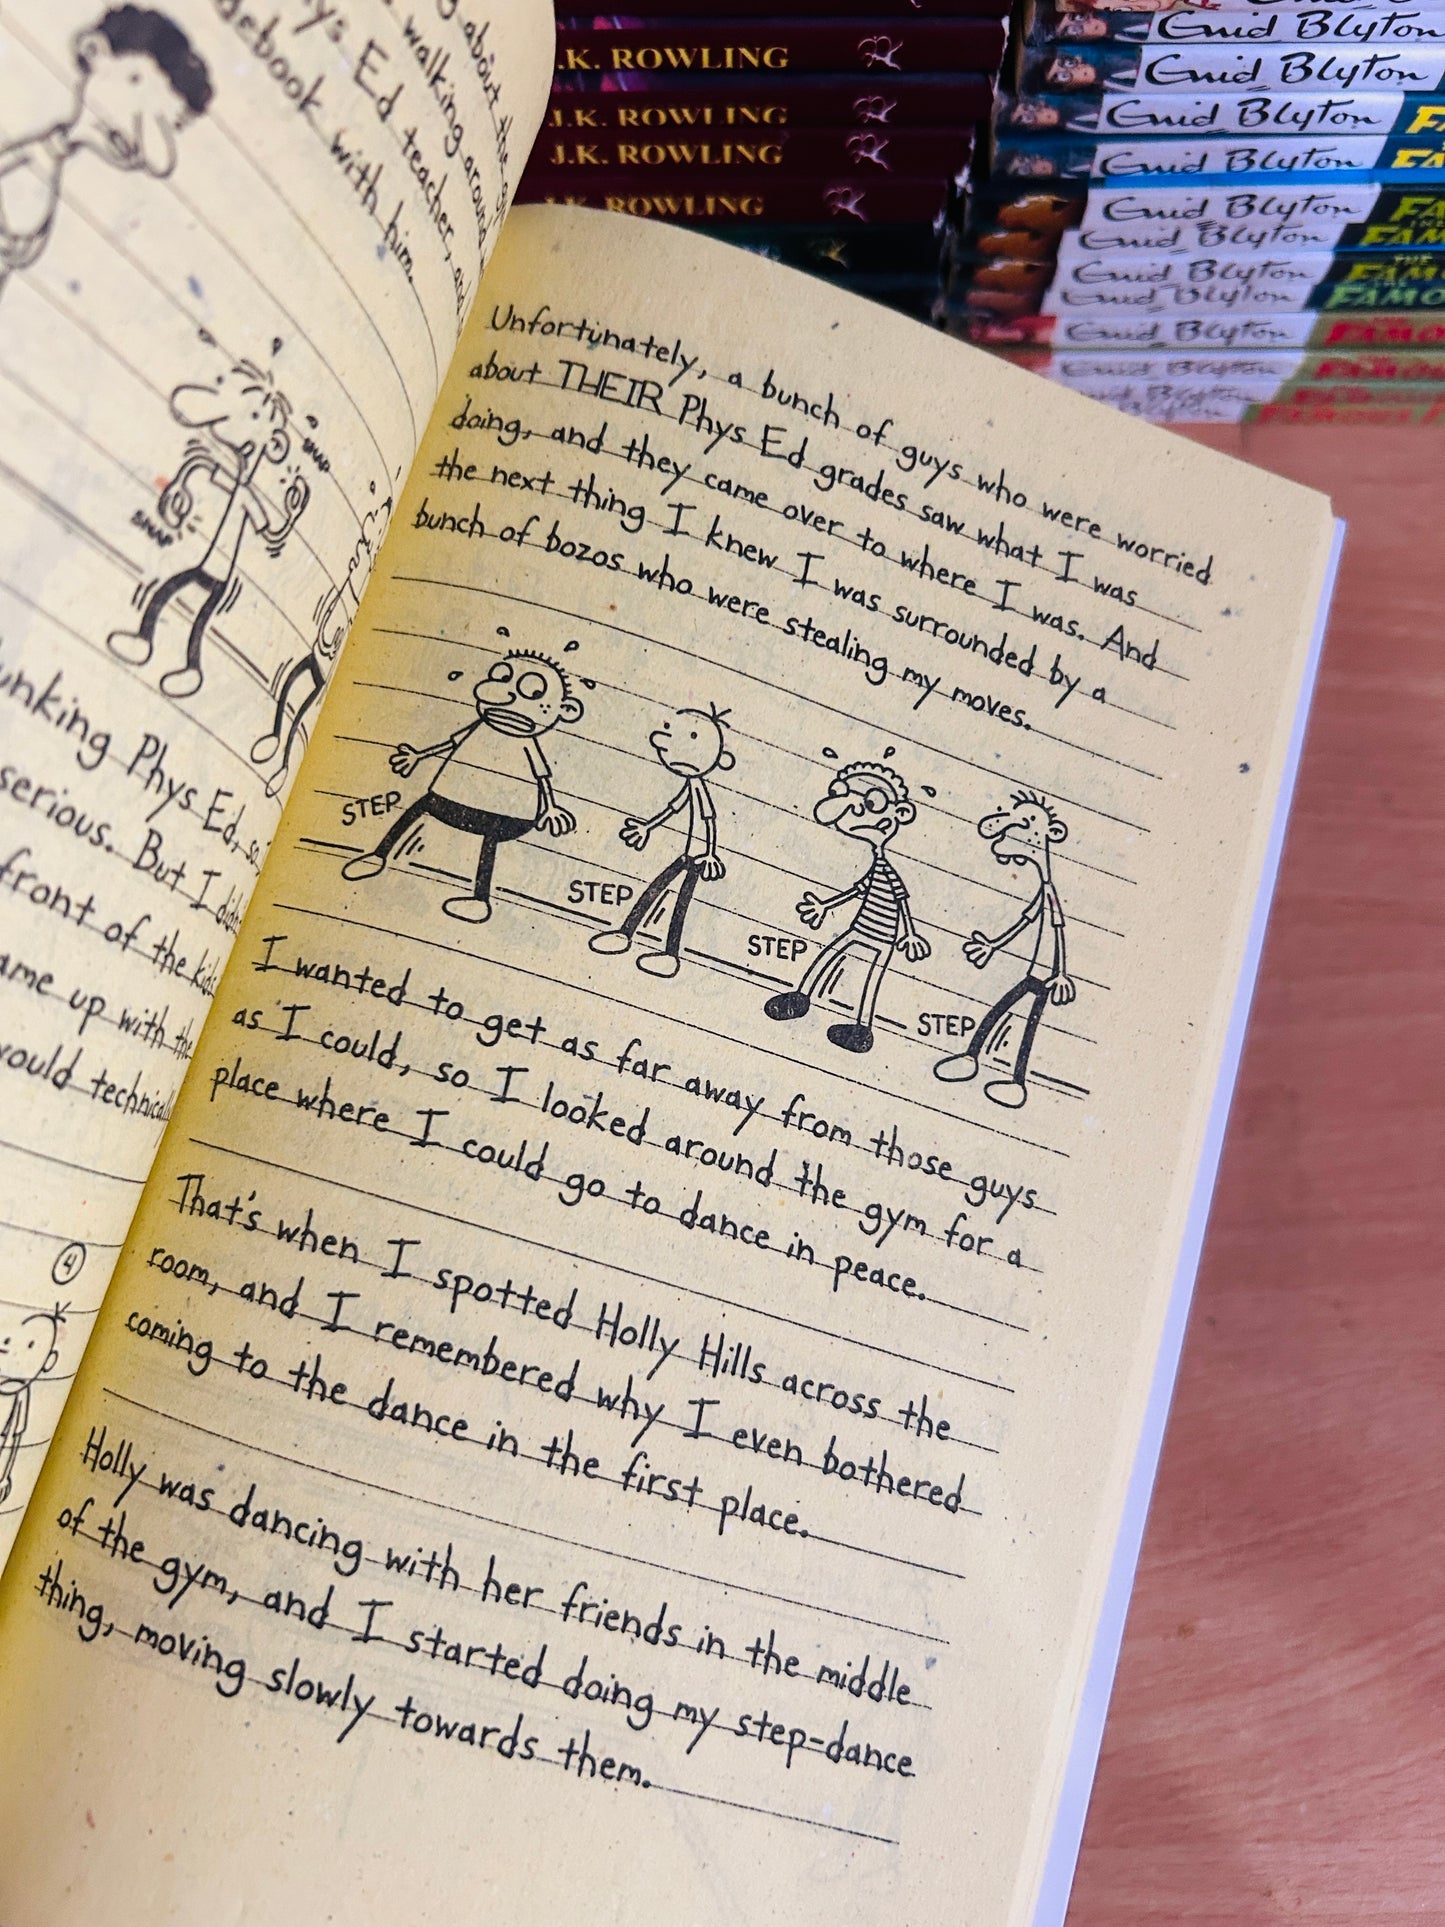 about the
walking around
Phys Ed teacher, and
notebook with him.
SNAP
SNAP
Phys Ed, so
serious. But I didn't
front of the kids
came up with the
would technically
4
J.K. ROWLING
J.K. ROWLING
J.K. ROWLING
J.K. ROWLING
Enid Blyton
Enid Blyton
Enid Blyton
Enid Blyton
Enid Blyton
Enid Blyton
Enid Blyton
Enid Blyton
Enid Blyton
Unfortunately, a bunch of guys who were worried
about THEIR Phys Ed grades saw what I was
doing, and they came over to where I was. And
the next thing I knew I was surrounded by a
bunch of bozos who were stealing my moves.
STEP
STEP
STEP
STEP
I wanted to get as far away from those guys
as I could, so I looked around the gym for a
place where I could go to dance in peace.
That's when I spotted Holly Hills across the
room, and I remembered why I even bothered
coming to the dance in the first place.
Holly was dancing with her friends in the middle
of the gym, and I started doing my step-dance
thing, moving slowly towards them.